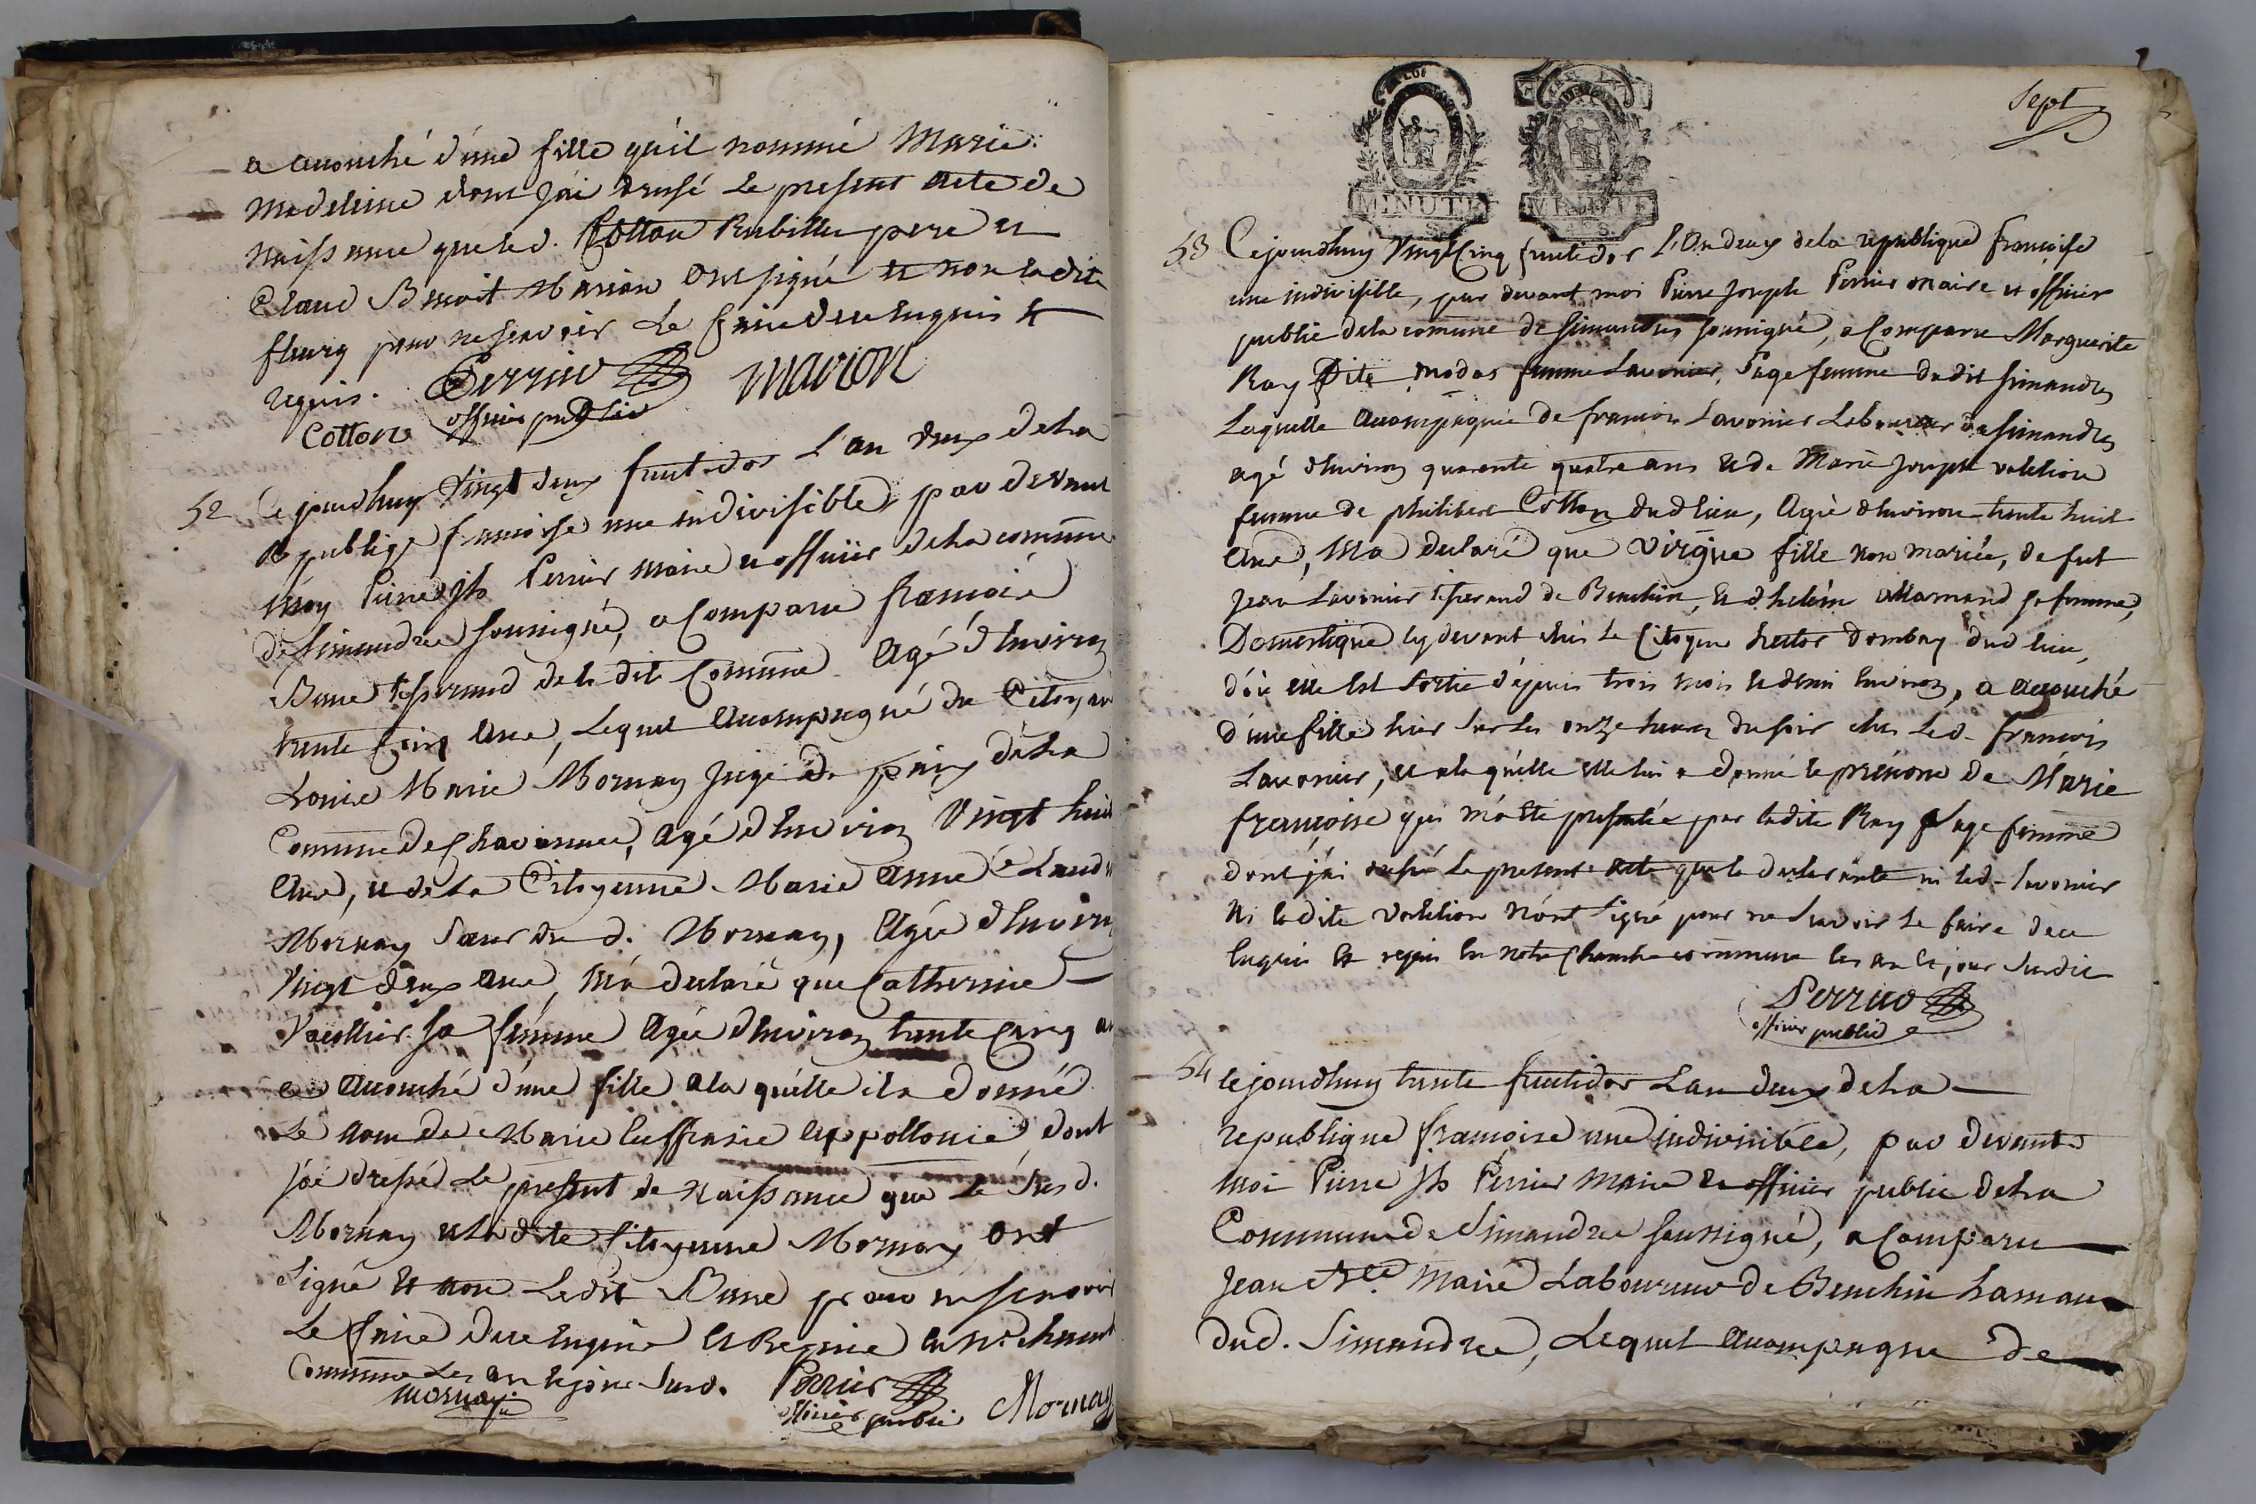 a accouché d'une fille qu'il nommé Marie
Madeleine dont j'ai dressé le present acte de
naissance que led. Cotton Rubillu pere et
Claud Benoit Marion ont signé et non ladite
fleury pour ne scavoir le faire de ce enquis et
requis.
Perrier
officier public
Marion
Cotton
52 Ce jourdhuy Vingt deux fructidor L'an deux de la
Republiqe francoise une indivisible, par devant
moy Pierre Jh Perrier maire et officier de la commune
de Simandre soussigné, a Comparu francoi
tisserand de la dite Commune Agé d'Environ
trente Cinq ans, Lequel accompagné du Citoyen
Louis Marie Mornay Juge de paix de la
Commune de Chavannes, agé d'Environ Vingt huit
Ans, et de la Citoyenne Marie Anne Claud
Mornay Sœur du d. Mornay, Agée d'Environ
Vingt deux ans, m'a declaré que Catherine
Vaullier sa femme Agée d'Environ trente Cinq an
a accouché d'une fille a la quelle il a donné
Le nom de Marie Euffrasie Appollonie dont
j'ai dressé Le present de Naissance que Le Sus d.
Mornay et la dite Citoyenne Mornay ont
signé et non Ledit pour ne scavoir
Le faire de ce Enquis et Requis en N.e chambre
Commune Les an et jour Susd.
Mornay
Perrier
officier public
Mornay
Sept
MINUTE
MINUTE
53 Ce jourdhuy Vingt Cinq fructidor L'An deux de la republique francoise
une indivisible, par devant moi Pierre Joseph Perrier maire et officier
public de la comune de Simandres soussigné, a Comparu Marguerite
Ray Dite modas femme Lavenier, Sage femme dudit Simandres
Laquelle accompagnée de francois Lavenier Laboureur de Simandres
agé d'Environ quarente quatre ans et de Marie Joseph volelion
femme de philibert Cotton dud lieu, Agée d'Environ trente huit
Ans, ma declaré que Virgne fille non mariée, de fut
Jean Lavenier tisserand de Beuchin, et d'helein allamand sa femme,
Domestique cy devant chés Le Citoyen hector dombey dud lieu,
d'où elle est sortie depuis trois mois et demi Environ, a accouché
d'une fille hier sur les onze heures du soir chés led. francois
Lavenier, et a la quelle elle lui a donné le prénom de Marie
françoise qui m'a Eté presentée par ladite Ray sage femme
dont j'ai dressé Le present acte que la declarante ni led. lavenier
Ni ladite volelion N'ont signé pour ne scavoir Le faire de ce
Enquis et requis En notre Chambre commune les an et jour Susdit
Perrier
officier public
54 Ce jourdhuy trente fructidor L'an deux de la
republique françoise une indivisible, par devant
moi Pierre Jh Perrier Maire et officier public de la
Commune de Simandre soussigné, a Comparu
Jean Marié Laboureur de Beuchin hamau
dud. Simandre, Lequel accompagne de